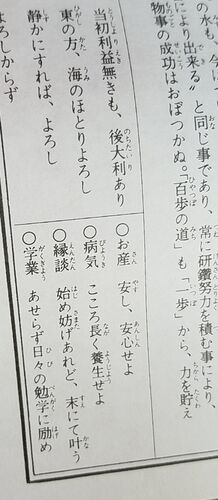 の水も、今
により出来る』と同じ事であり、常に研鑽努力を積む事により、
物事の成功はおぼつかぬ。「百歩の道」も「一歩」から、力を貯え
当初利益無きも、後大利あり
東の方、海のほとりよろし
静かにすれば、よろし
よろしからず
○お産 安し、安心せよ
○病気 こころ長く養生せよ
○縁談 始め妨げあれど、末にて叶う
○学業 あせらず日々の勉学に励め